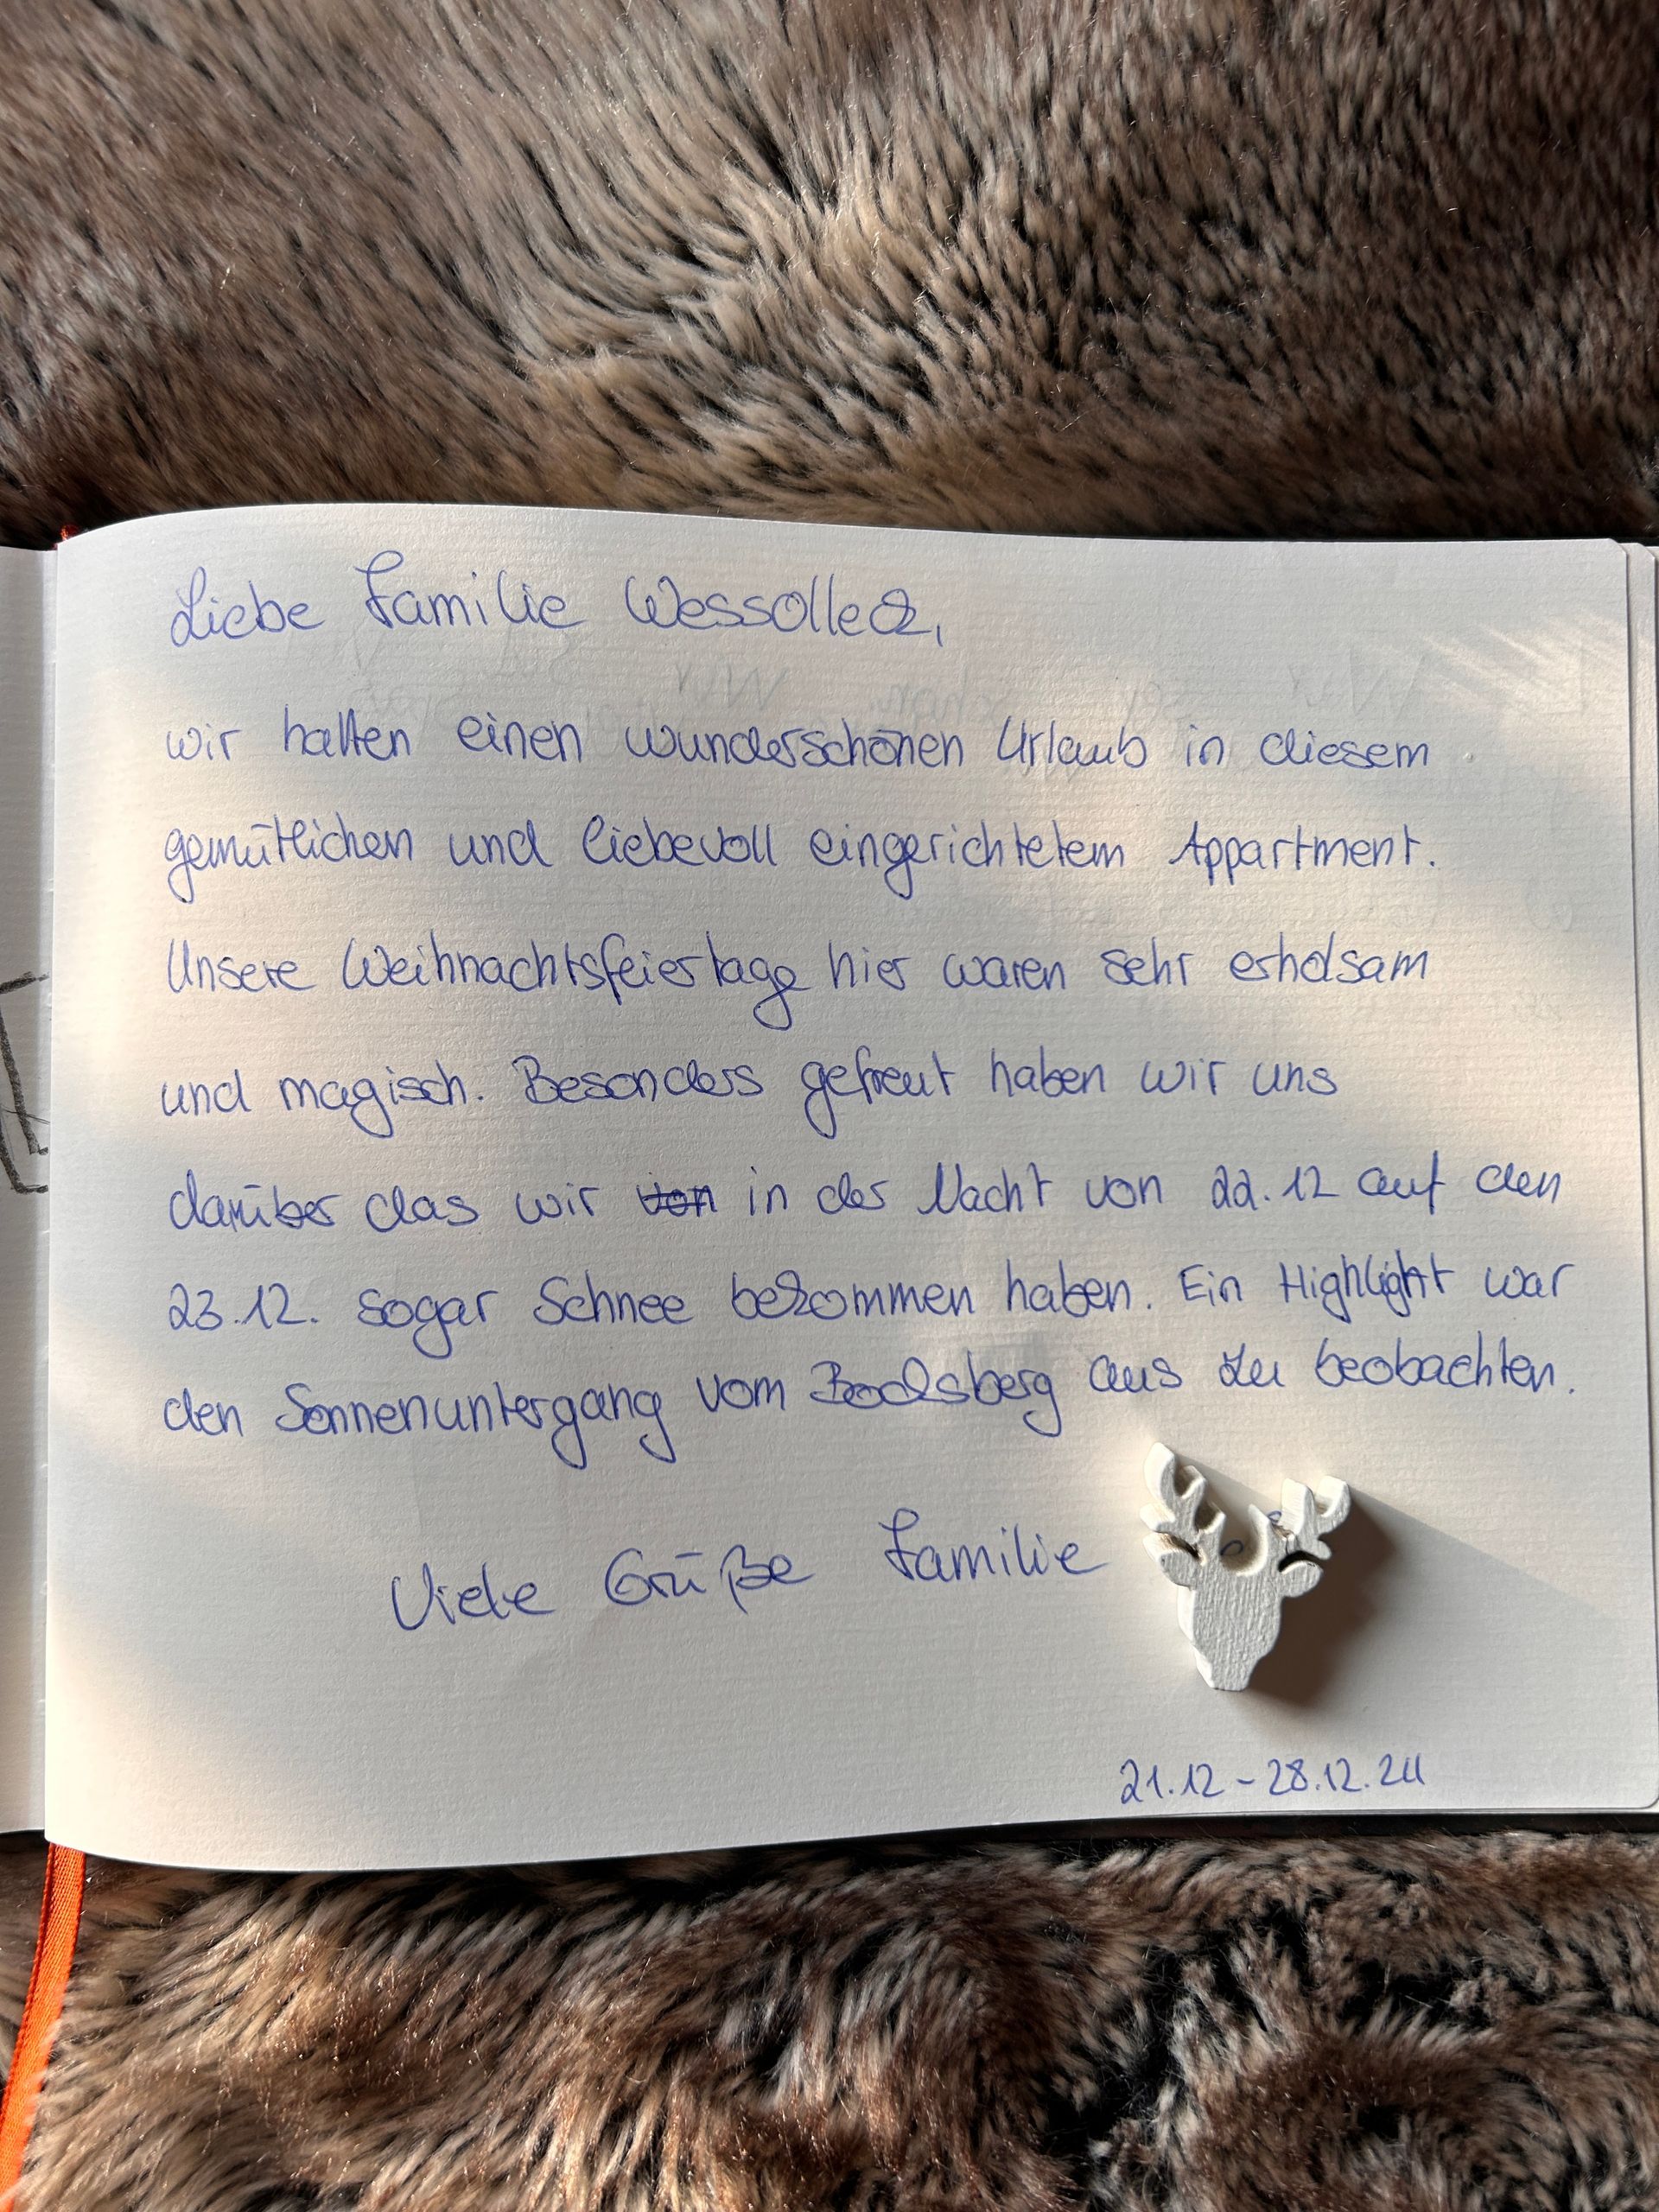 Liebe Familie Wessolleck,
wir hatten einen wunderschönen Urlaub in diesem
gemütlichen und liebevoll eingerichtetem Appartment.
Unsere Weihnachtsfeiertage hier waren sehr erholsam
und magisch. Besonders gefreut haben wir uns
darüber das wir von in der Nacht von 22.12 auf den
23.12. sogar Schnee bekommen haben. Ein Highlight war
den Sonnenuntergang vom Bocksberg aus zu beobachten.
Viele Grüße Familie
21.12 - 28.12.24